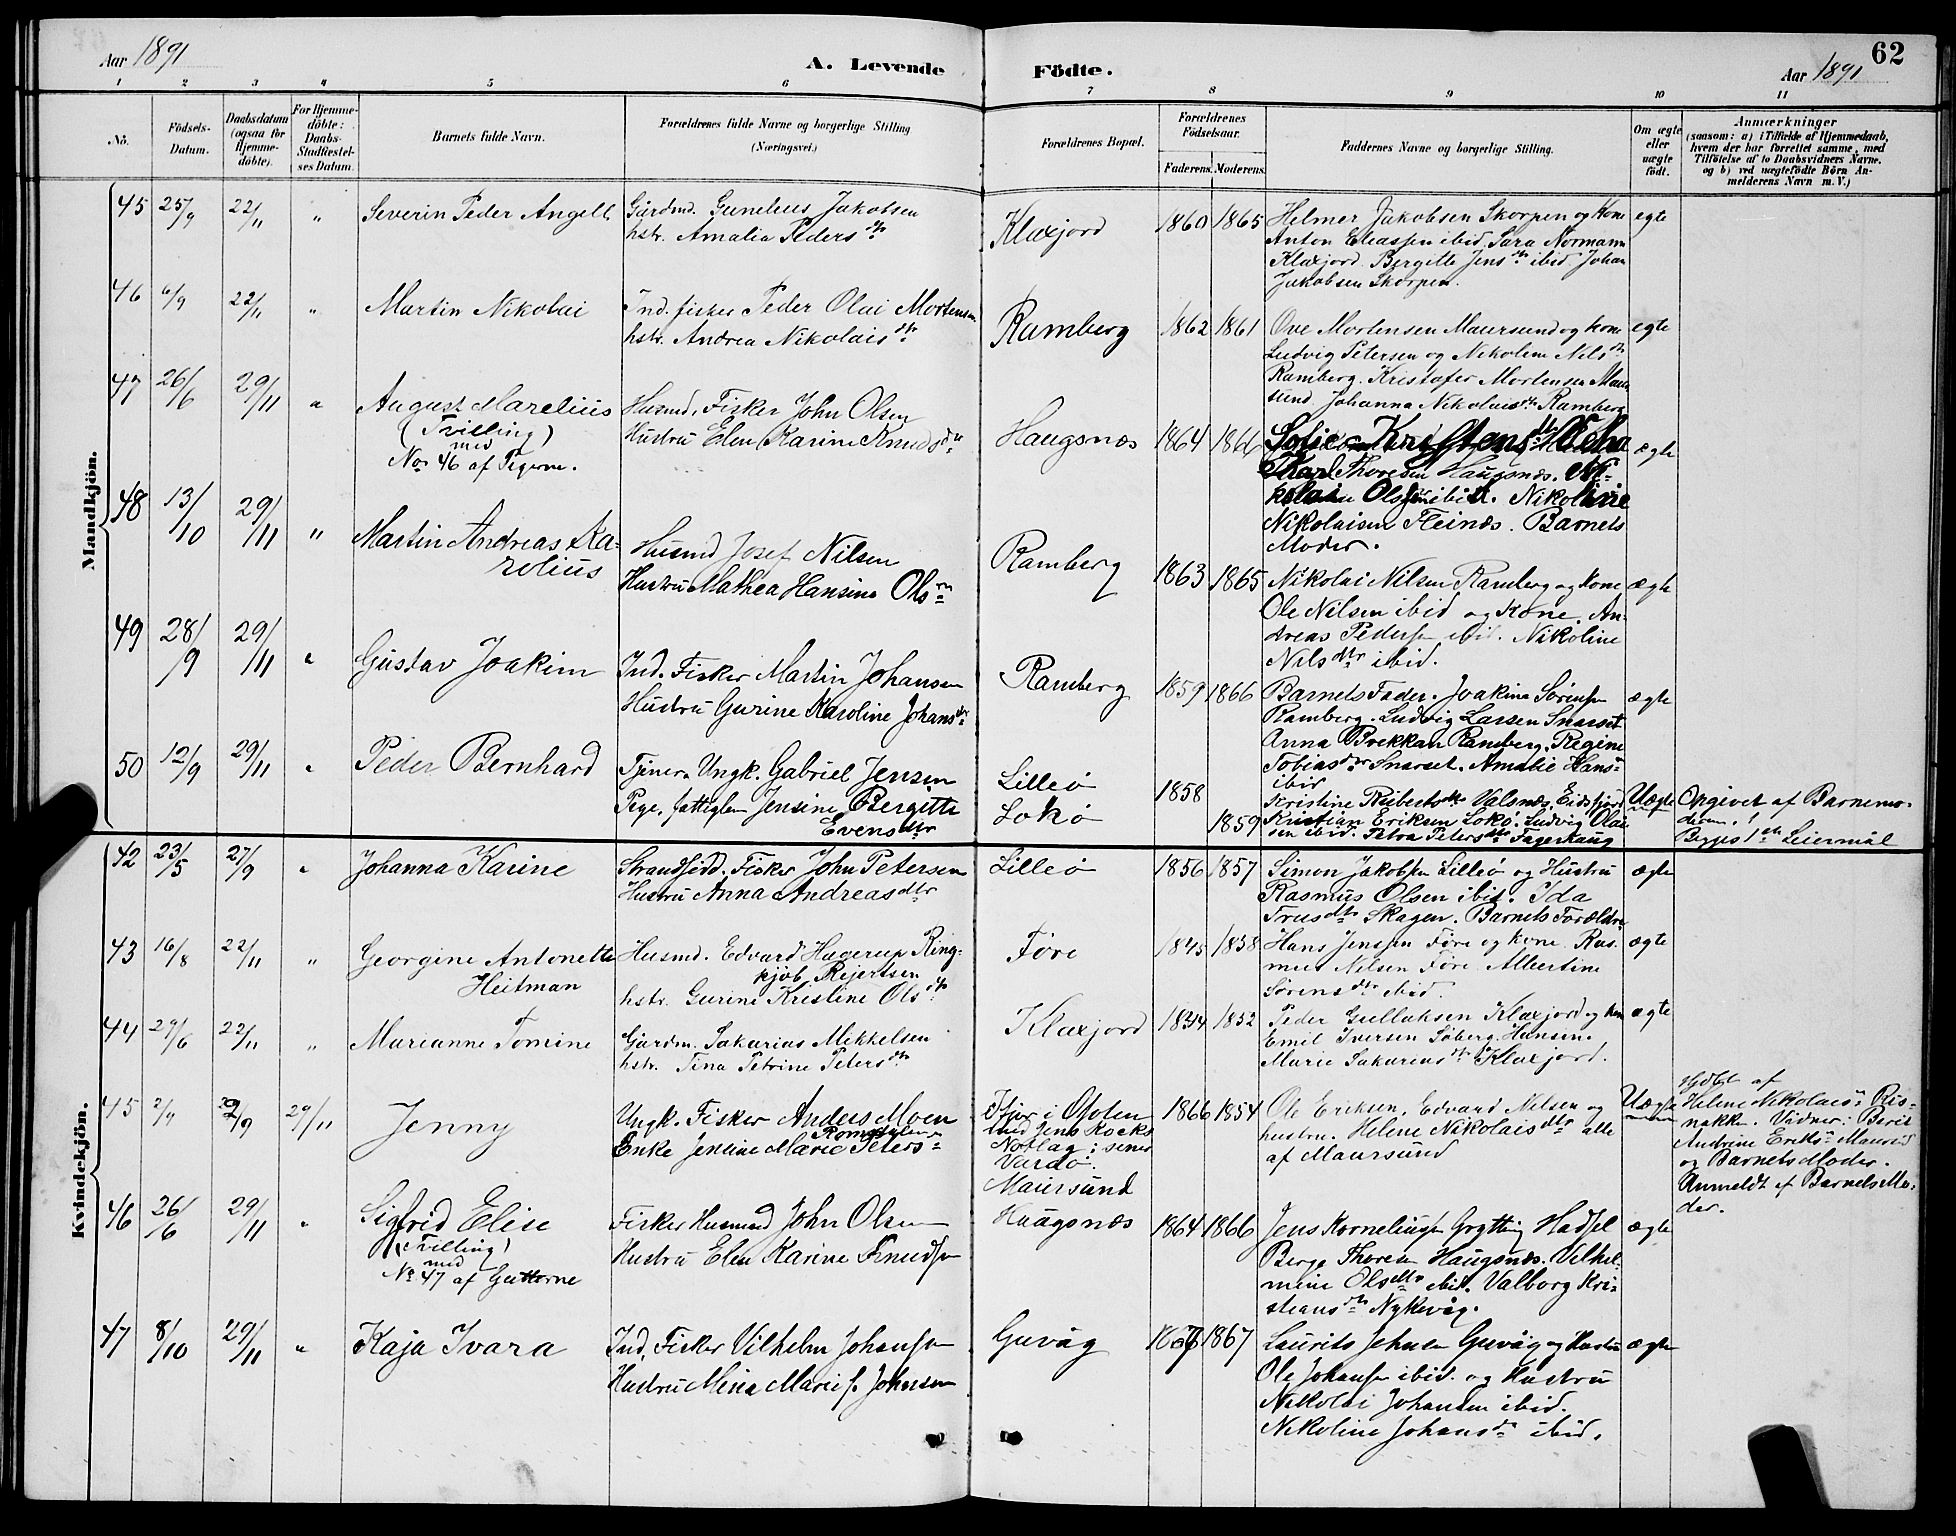 Aar 1891 A. Levende Födte. Aar 1891 62
1 2 3 4 5 6 7 8 9 10 11
No.
Födsels-
Datum.
Daabsdatum
(ogsaa for
Hjemme-
döbte).
For Hjemme-
döbte:
Daabs-
Stadfæstel-
ses Datum.
Barnets fulde Navn.
Forældrenes fulde Navne og borgerlige Stilling
(Næringsvei.)
Forældrenes Bopæl.
Forældrenes
Födselsaar.
Faderens. Moderens.
Faddernes Navne og borgerlige Stilling.
Om ægte
eller
uægte
födt.
Anmærkninger
(saasom: a) i Tilfælde af Hjemmedaab,
hvem der har forrettet samme, med
Tilföielse af to Daabsvidners Navne,
og b) ved uægtefödte Börn An-
melderens Navn m. V.)
Mandkjön.
45 25/9 22/11 " Severin Peder Angell
Gårdmd. Gunelius Jakobsen
hstr. Amalia Pedersdtr
Klaxjord 1860 1865
Helmer Jakobsen Skorpen og Kone
Anton Eliassen ibid. Sara Normann
Klaxjord. Bergitte Jensdtr ibid. Johan
Jakobsen Skorpen.
egte
46 6/9 22/11 " Martin Nikolai
Ind. fisker Peder Olai Mortensen
hstr. Andrea Nikolaisdtr
Ramberg 1862 1861
Ove Mortensen Maursund og kone
Ludvig Petersen og Nikoline Nilsdtr
Ramberg. Kristofer Mortensen Maur
sund. Johanna Nikolaisdtr Ramberg
egte
47 26/6 29/11 " August Marelius
(Tvilling)
med
No 46 af Pigerne.
Husmd. Fisker John Olsen
Hustru Elen Karine Knudsdtr
Haugsnæs 1864 1866
Karl Thoresen Haugsnæs. Ni-
kolai Olsen ibid. Nikoline
Nikolaisen Steinæs. Barnets
Moder.
ægte
48 13/10 29/11 " Martin Andreas Ka-
rolius
Husmd Josef Nilsen
Hustru Mathea Hansine Olsen
Ramberg 1863 1865
Nikolai Nilsen Ramberg og kone
Ole Nilsen ibid og Kone. An-
dreas Pedersen ibid. Nikoline
Nilsdtr ibid.
ægte
49 28/9 29/11 " Gustav Joakim
Ind. Fisker Martin Johansen
Hustru Gurine Karoline Johansdtr
Ramberg 1859 1866
Barnets Fader. Joakim Sørensen
Ramberg. Ludvig Larsen Snarset
Anna Brekkan Ramberg. Regine
Tobiasdtr Snarset. Amalie Hans-
ibid
ægte
50 12/9 29/11 " Peder Bernhard
Tjener Ungk. Gabriel Jensen
Pige, fattiglem Jensine Bergitte
Evensdtr
Lilleø 1858
Lokø 1859
Kristine Rubertsdtr Valsnæs, Eidsfjord
Kristian Eriksen Lokø. Ludvig Olai
sen ibid. Petra Petersdtr Fagerhaug
Uægte
Opgivet af Barnemo-
deren.
Begges 1ste Leiermål
Kvindekjön.
42 23/5 27/9 " Johanna Karine
Strandsidd. Fisker John Petersen
Hustru Anna Andreasdtr
Lilleø 1856 1857
Simon Jakobsen Lilleø og Hustru
Rasmus Olsen ibid. Ida
Trusdtr Skagen. Barnets Forældre
ægte
43 16/8 22/11 " Georgine Antonette
Heitman
Husmd. Edvard Hagerup Ring-
kjøb Rejertsen
hstr. Gurine Kristine Olsdtr
Føre 1845 1858
Hans Jenssen Føre og kone. Ras-
mus Nilsen Føre. Albertine
Sørensdtr ibid.
ægte
44 29/6 22/11 " Marianne Tomine
Gårdm. Sakarias Mikkelsen
hstr. Tina Petrine Petersdtr
Klaxjord 1844 1852
Peder Gullaksen Klaxjord og kone
Emil Iversen Søberg. Hansine
Marie Sakariasdtr Klaxjord.
ægte
45 2/9 2/9 29/11 Jenny
Ungk. Fisker Anders Moen
Romsdalen
Enke Jensine Marie Peters-
Fjær i Ofoten
med Jens Rocks
Notlag; senere
Vardø.
Maursund
1866 1854
Ole Eriksen. Edvard Nilsen og
hustru. Helene Nikolaisdtr alle
af Maursund
Uægte
Hjdøbt af
Helene Nikolais- Ris-
nakken. Vidner: Berit
Andrine Eriks- Maursd
og Barnets Moder.
Anmeldt af Barnets Mo-
der.
46 26/6 29/11 " Sigfrid Elise
(Tvilling)
med
No 47 af Gutterne
Fisker Husmand John Olsen
Hustru Elen Karine Knudsen
Haugsnæs 1864 1866
Jens Korneliusen Grytting Hadsel
Berge Thoresen Haugsnæs. Vilhel-
mine Olsdtr ibid. Valborg Kri-
stiansdtr Nykvåg.
ægte
47 8/10 29/11 " Kaja Ivara
Ind. Fisker Vilhelm Johansen
Hustru Mina Marie f. Johnsen
Guvåg 1867
Laurits Jensen Guvåg og Hustru
Ole Johansen ibid. og Hustru
Nikolai Johansen ibid.
Nikoline Johansdtr ibid.
ægte